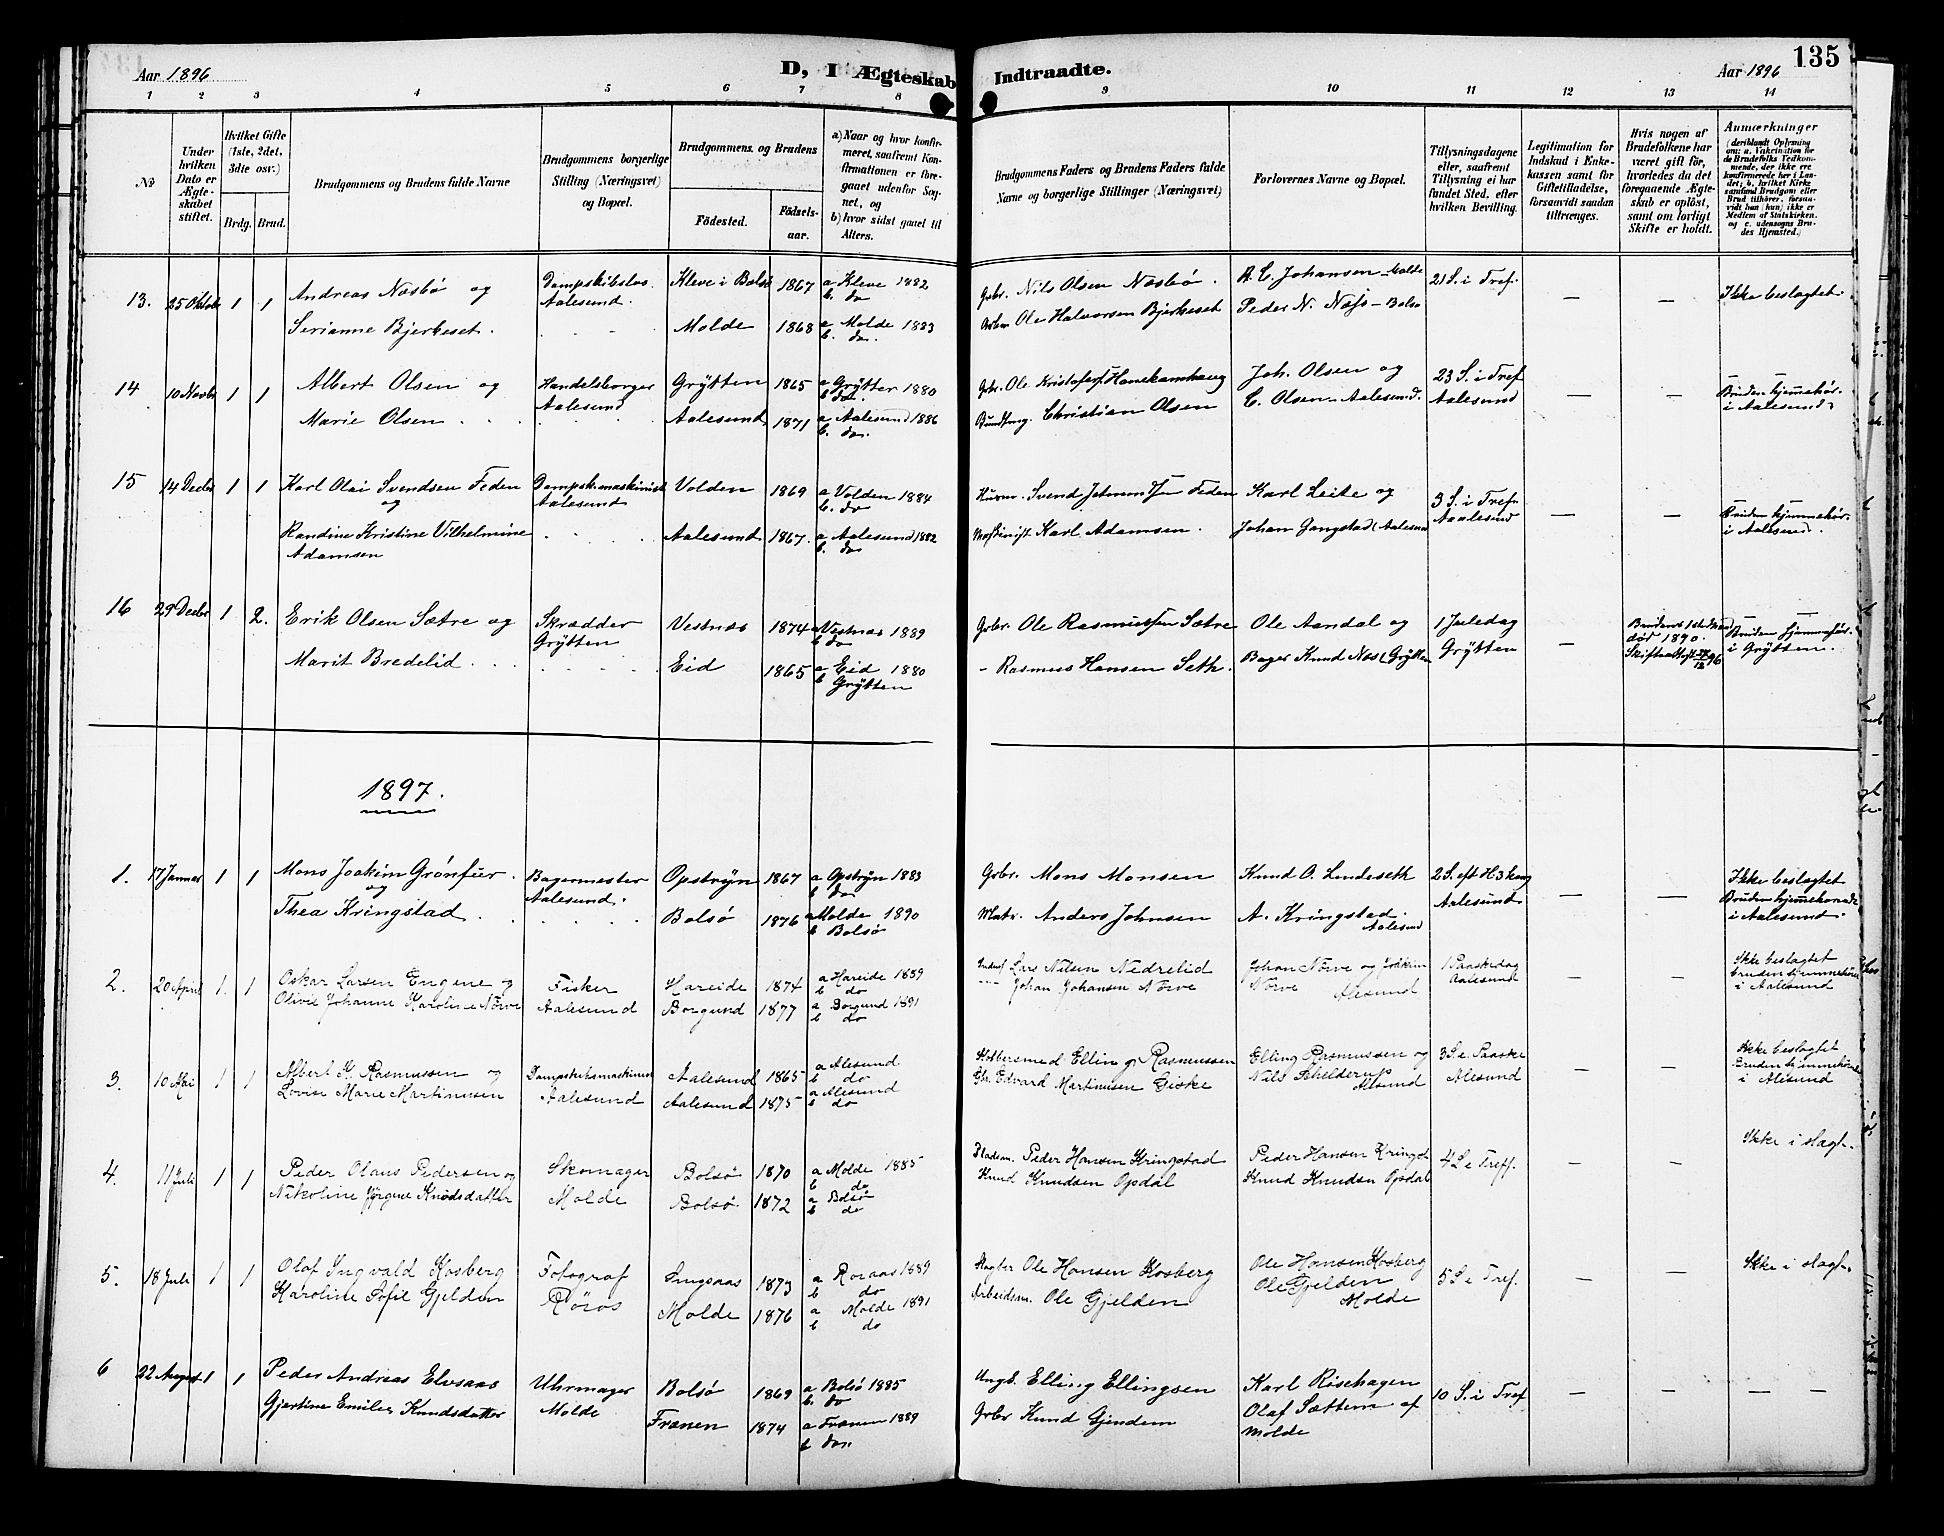 135
Aar 1896
D, I Ægteskab Indtraadte.
Aar 1896
1 2 3 4 5 6 7 8 9 10 11 12 13 14
No
Under hvilken Dato er Ægteskabet stiftet.
Hvilket Gifte (1ste, 2det, 3die osv.)
Brdg. Brud.
Brudgommens og Brudens fulde Navne
Brudgommens borgerlige Stilling (Næringsvei) og Bopæl.
Brudgommens og Brudens
Födested.
Födselsaar.
a) Naar og hvor konfirmeret, saafremt Konfirmationen er foregaaet udenfor Sognet, og
b) hvor sidst gaaet til Alters.
Brudgommens Faders og Brudens Faders fulde Navne og borgerlige Stillinger (Næringsvei)
Forlovernes Navne og Bopæl.
Tillysningsdagene eller, saafremt Tillysning ei har fundet Sted, efter hvilken Bevilling.
Legitimation for Indskud i Enkekassen samt for Giftetilladelse, forsaavidt saadan tiltrænges.
Hvis nogen af Brudefolkene har været gift för, hvorledes da det foregaaende Ægteskab er oplöst, samt om lovligt Skifte er holdt.
Anmærkninger (deriblandt Oplysning om: a. Vakcination for de Brudefolks Vedkommende, der ikke ere konfirmerede her i Landet; b. hvilket Kirkesamfund Brudgom eller Brud tilhörer, forsaavidt han (hun) ikke er Medlem af Statskirken, og c. udensogns Brudes Hjemsted.)
13. 25 Oktob 1 1 Andreas Næsbø og Dampskibslos Kleve i Bolsø 1867 a Kleve 1882 Gbr. Nils Olsen Næsbø. A. C. Johansen - Molde 21 S. i Tref. — — Ikke beslagtet.
Serianne Bjerkeset. Aalesund. Molde 1868 a Molde 1883 b. do. Arbm Ole Halvorsen Bjerkeset Peder N. Næss - Bolsø
14 10 Novbr 1 1 Albert Olsen og Handelsborger Grytten 1865 a Grytten 1880 b. do. Gbr. Ole Kristofers. Hanekamhaug Joh. Olsen og 23 S. i Tref — — Bruden hjemmehør.
Marie Olsen Aalesund Aalesund 1871 a Aalesund 1886 b. do. Christian Olsen C. Olsen - Aalesund. Aalesund i Aalesund
15 14 Decbr 1 1 Karl Olai Svendsen Feden Dampsk.maskinist Volden 1869 a Volden 1884 b. do Husm. Svend Feden Karl Leite og 3 S. i Tref. — — Bruden hjemmehør.
og Aalesund
Randine Kristine Vilhelmine Aalesund 1867. a Aalesund 1882 b. do Maskinist Karl Adamsen. Johan Gangstad (Aalesund Aalesund i Aalesund.
Adamsen
16 29 Decbr 1 2. Erik Olsen Sætre og Skrædder Vestnæs 1874 a Vestnæs 1889 b do Gbr. Ole Rasmussen Sætre Ole Aandal og 1 Juledag — Brudens 1ste Mand Bruden hjemmehør.
Marit Bredelid Grytten Eid 1865 a Eid 1880 b Grytten - Rasmus Hansen Seth. Bager Knud Næs (Grytten Grytten død 1890. i Grytten.
1897.
1. 17 Januar 1 1 Mons Joakim Grønfur Bagermester Opstryn 1867 a Opstryn 1883 b do Gbr. Mons Monsen Knud O. Lindeseth 2 S. eft H3kong — — Ikke beslagtet
og Aalesund. Aalesund Bruden hjemmehørende
Thea Kringstad Bolsø 1876 a Molde 1890 b Bolsø Matr. Anders Johnsen A. Kringstad. Aalesund i Aalesund.
2. 20 April 1. 1 Oskar Larsen Engene og Fisker Hareide 1874 a Hareide 1889 b do Lars Nilsen Nedrelid Johan Nörve og Joakim 1 Paaskedag — — Ikke beslagtet
Olivie Johanne Karoline Nörve Aalesund Borgund 1877 a Borgund 1891 b do Johan Johansen Nörve Nörve Alesund Aalesund bruden hjemmehörende i Aalesund
3. 10 Mai 1 1 Albert K. Rasmussen og Dampskibsmaskinist Aalesund 1865 a Alesund b do Kobbersmed Elling Rasmussen Elling Rasmussen og 3 S e. Paaske — — Ikke beslagtet
Lovise Marie Martinusen Aalesund Aalesund 1875 a Alesund b do Gbr. Edvard Martinusen Giske Nils Schelderup Alesund Alesund Bruden hjemmehörende i Alesund
4. 11 Juli 1 1 Peder Olaus Pedersen og Skomager Bolsö 1870 a Molde 1885 b do Pladsm. Peder Hansen Kringstad Peder Hansen Kringst 4 S e Treff. — — Ikke i slagt.
Nikoline Jörgine Knudsdatter Molde Bolsö 1872 a Bolsö b do Knud Knudsen Opdal Knud Knudsen Opdal
5. 18 Juli 1 1 Olaf Ingvald Kosberg Fotograf Singsaas 1873 a Röraas 1889 b do Ole Hansen Kosberg Ole Hansen Kosberg 5 S e Tref. — — Ikke i slagt.
Karoline Sofie Gjelden Röros Molde 1876 a Molde 1891 b do Arbeidsm. Ole Gjelden Ole Gjelden Molde
6 22 August 1 1 Peder Andreas Elvsaas Uhrmager Bolsø 1869 a Bolsø 1885 b. do Ungk. Elling Ellingsen Karl Rösehagen 10 S. i Tref. — — — —
Gjertine Emilie Knudsdatter Molde Frænen 1874 a Frænen 1889 b do. Gbr Knud Gjendem Olaf Sættem af Molde